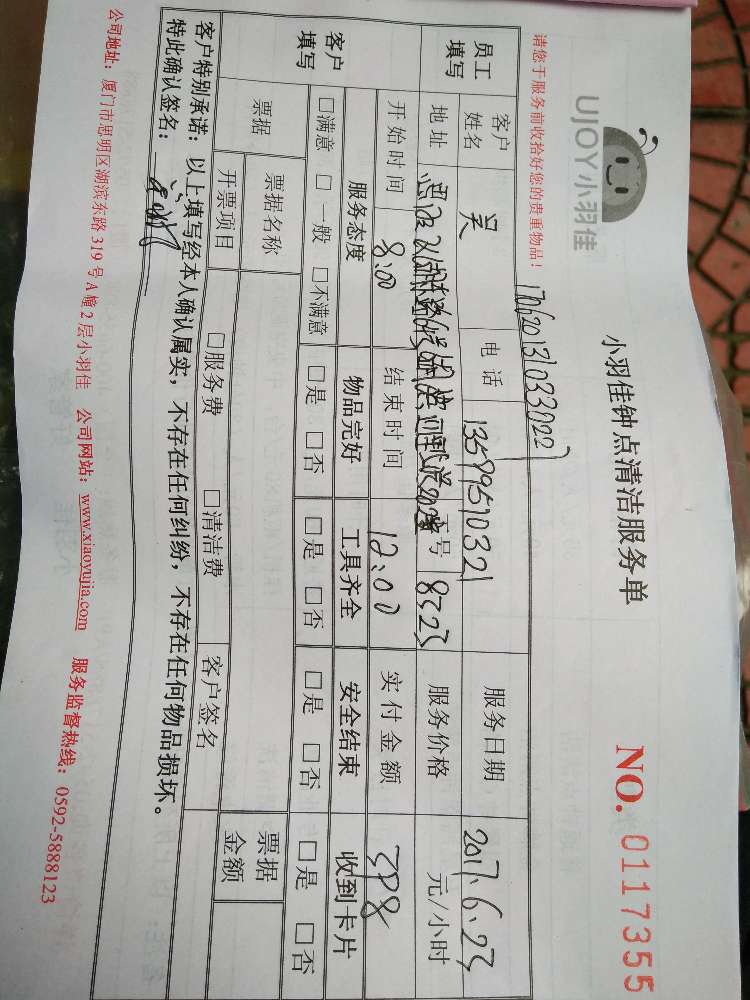 UJOY小羽佳
小羽佳钟点清洁服务单
NO. 0117355
请您于服务前收拾好您的贵重物品！
170620131033022
员工填写
客户姓名 吴 电话 13599510321 服务日期 2017.6.23
地址 号 8523 服务价格 元/小时
开始时间 8:00 结束时间 12:00 实付金额 398
客户填写
服务态度 物品完好 工具齐全 安全结束 收到卡片
□满意 □一般 □不满意 □是 □否 □是 □否 □是 □否 □是 □否
票据 票据名称 票据金额
开票项目 □服务费 □清洁费 客户签名
客户特别承诺：以上填写经本人确认属实，不存在任何纠纷，不存在任何物品损坏。
特此确认签名：
公司地址：厦门市思明区湖滨东路319号A幢2层小羽佳 公司网站：www.xiaoyujia.com 服务监督热线：0592-5888123